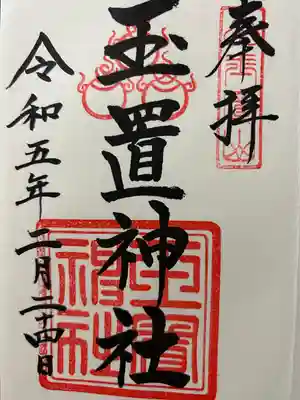 奉拝
玉置神社
令和五年二月二十四日